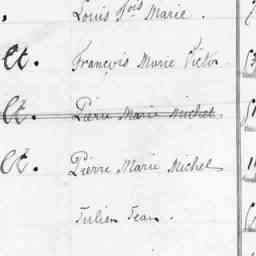 Louis Fois Marie.
et. François Marie Victor
et. Pierre Marie Michel.
et. Pierre Marie Michel
Julien Jean.